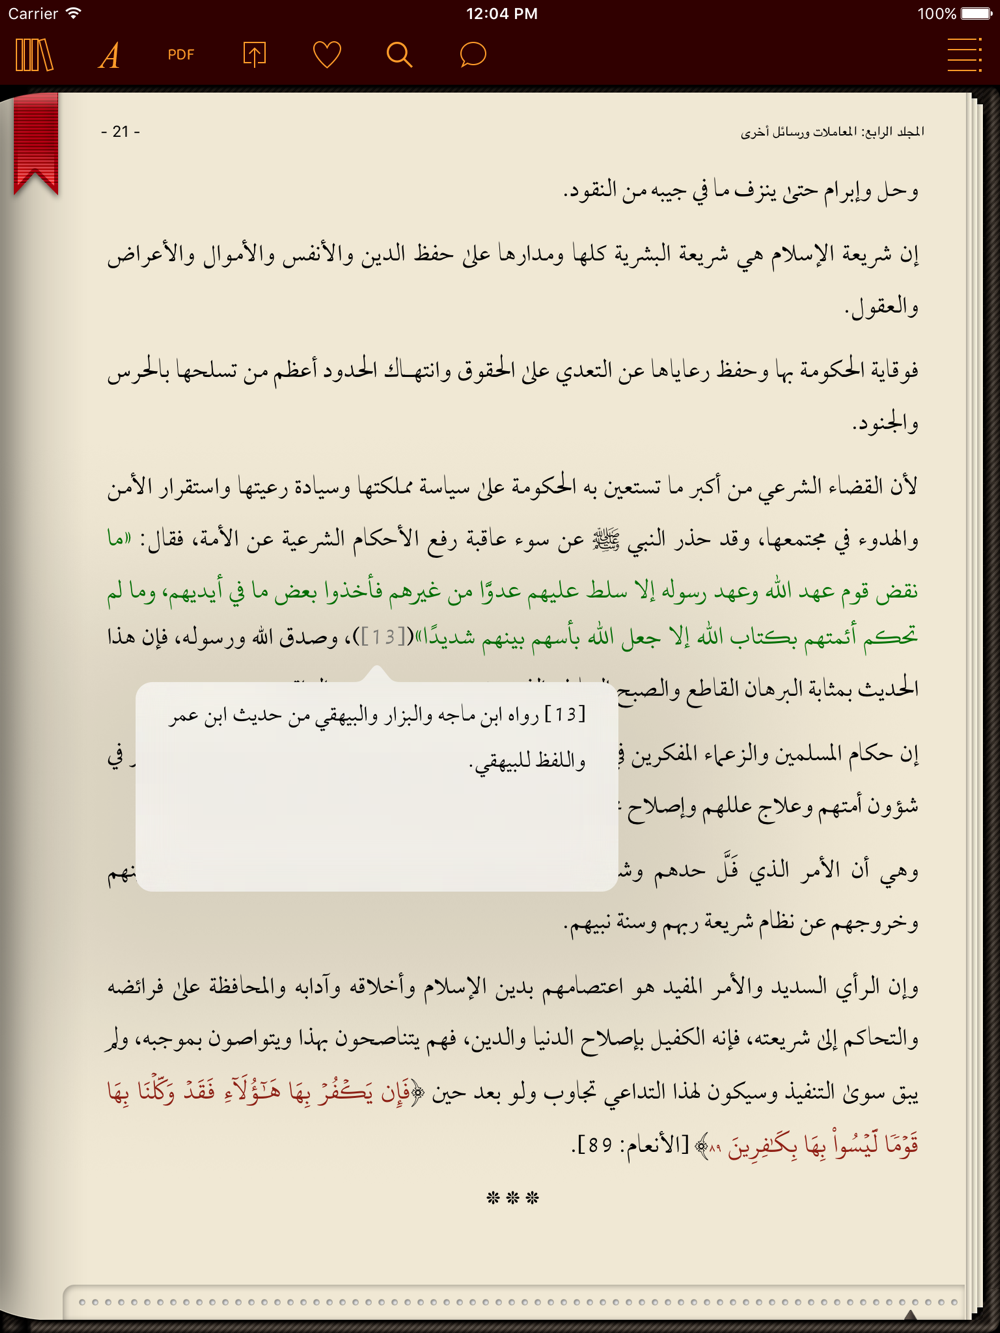 Carrier 12:04 PM 100%
A PDF
المجلد الرابع: المعاملات ورسائل أخرى - 21 -
وحل وإبرام حتىٰ ينزف ما في جيبه من النقود.
إن شريعة الإسلام هي شريعة البشرية كلها ومدارها علىٰ حفظ الدين والأنفس والأموال والأعراض
والعقول.
فوقاية الحكومة بها وحفظ رعاياها عن التعدي علىٰ الحقوق وانتهاك الحدود أعظم من تسلحها بالحرس
والجنود.
لأن القضاء الشرعي من أكبر ما تستعين به الحكومة علىٰ سياسة مملكتها وسيادة رعيتها واستقرار الأمن
والهدوء في مجتمعها، وقد حذر النبي ﷺ عن سوء عاقبة رفع الأحكام الشرعية عن الأمة، فقال: «ما
نقض قوم عهد الله وعهد رسوله إلا سلط عليهم عدوًّا من غيرهم فأخذوا بعض ما في أيديهم، وما لم
تحكم أئمتهم بكتاب الله إلا جعل الله بأسهم بينهم شديدًا»([13])، وصدق الله ورسوله، فإن هذا
الحديث بمثابة البرهان القاطع والصبح
[13] رواه ابن ماجه والبزار والبيهقي من حديث ابن عمر
واللفظ للبيهقي.
إن حكام المسلمين والزعماء المفكرين في
شؤون أمتهم وعلاج عللهم وإصلاح
وهي أن الأمر الذي فَلَّ حدهم
وخروجهم عن نظام شريعة ربهم وسنة نبيهم.
وإن الرأي السديد والأمر المفيد هو اعتصامهم بدين الإسلام وأخلاقه وآدابه والمحافظة علىٰ فرائضه
والتحاكم إلىٰ شريعته، فإنه الكفيل بإصلاح الدنيا والدين، فهم يتناصحون بهذا ويتواصون بموجبه، ولم
يبق سوىٰ التنفيذ وسيكون لهذا التداعي تجاوب ولو بعد حين ﴿فَإِن يَكۡفُرۡ بِهَا هَٰٓؤُلَآءِ فَقَدۡ وَكَّلۡنَا بِهَا
قَوۡمٗا لَّيۡسُواْ بِهَا بِكَٰفِرِينَ ٨٩﴾ [الأنعام: 89].
❊ ❊ ❊